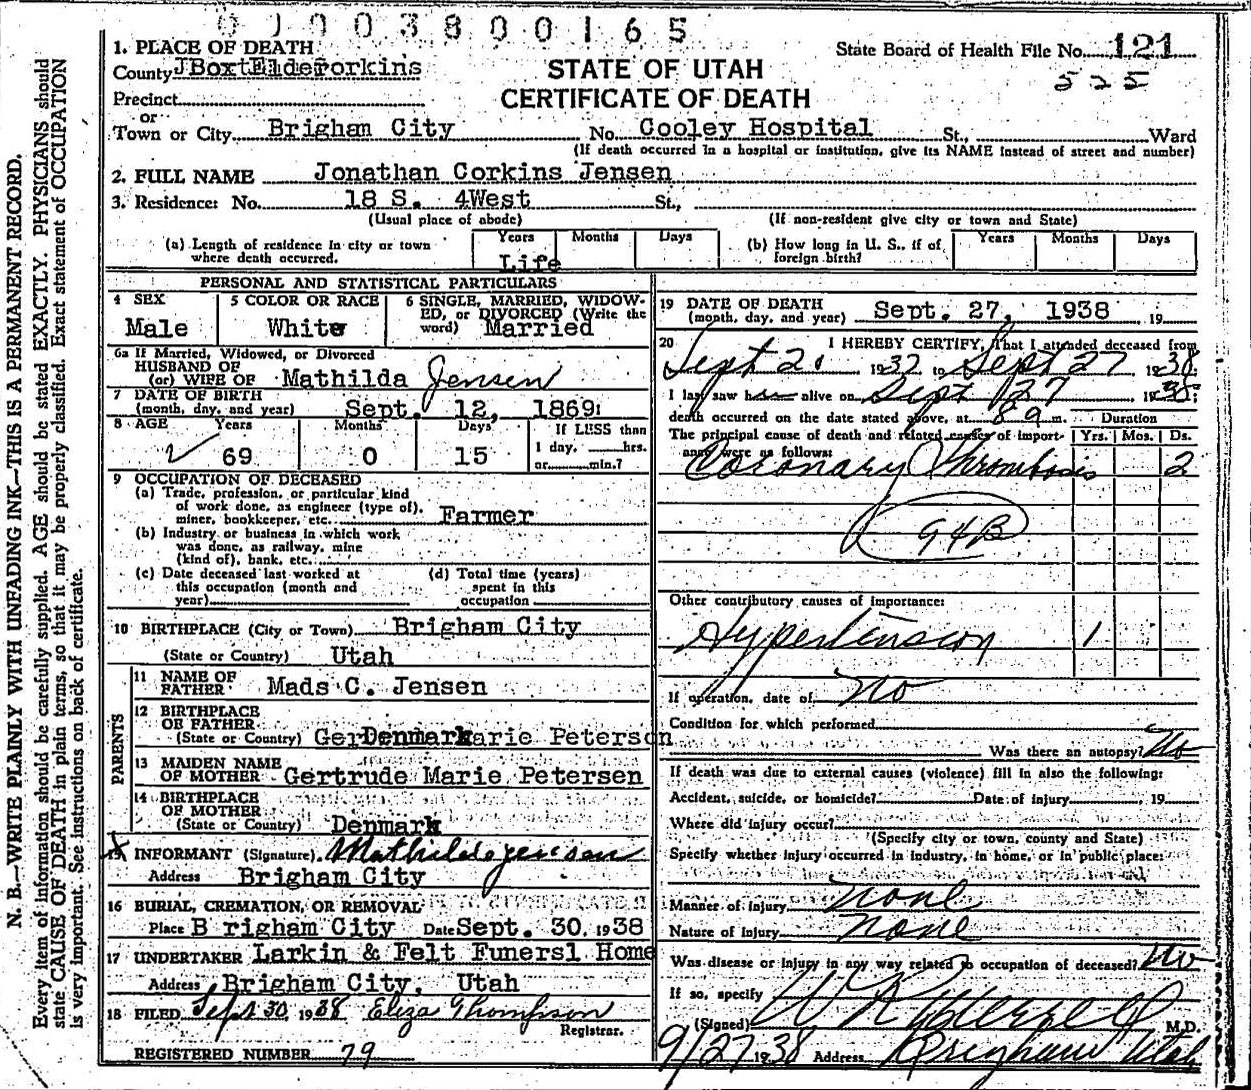 0 1 0 0 3 8 0 0 1 6 5
1. PLACE OF DEATH
State Board of Health File No. 121
525
County Box Elder
STATE OF UTAH
CERTIFICATE OF DEATH
Precinct
or
Town or City Brigham City No. Cooley Hospital St., Ward
(If death occurred in a hospital or institution, give its NAME instead of street and number)
2. FULL NAME Jonathan Corkins Jensen
3. Residence: No. 18 S. 4West St.,
(Usual place of abode) (If non-resident give city or town and State)
(a) Length of residence in city or town where death occurred. Years Months Days
Life
(b) How long in U. S., if of foreign birth? Years Months Days
PERSONAL AND STATISTICAL PARTICULARS
4 SEX
Male
5 COLOR OR RACE
White
6 SINGLE, MARRIED, WIDOWED, or DIVORCED (Write the word) Married
6a If Married, Widowed, or Divorced
HUSBAND OF
(or) WIFE OF Mathilda Jensen
7 DATE OF BIRTH
(month, day, and year) Sept. 12, 1869
8 AGE Years Months Days If LESS than
69 0 15 1 day, hrs.
or min.?
9 OCCUPATION OF DECEASED
(a) Trade, profession, or particular kind
of work done, as engineer (type of),
miner, bookkeeper, etc. Farmer
(b) Industry or business in which work
was done, as railway, mine
(kind of), bank, etc.
(c) Date deceased last worked at
this occupation (month and
year)
(d) Total time (years)
spent in this
occupation
10 BIRTHPLACE (City or Town) Brigham City
(State or Country) Utah
PARENTS
11 NAME OF
FATHER Mads C. Jensen
12 BIRTHPLACE
OF FATHER
(State or Country) Denmark
13 MAIDEN NAME
OF MOTHER Gertrude Marie Petersen
14 BIRTHPLACE
OF MOTHER
(State or Country) Denmark
15 INFORMANT (Signature) Mathilda Jensen
Address Brigham City
16 BURIAL, CREMATION, OR REMOVAL
Place B righam City Date Sept. 30, 1938
17 UNDERTAKER Larkin & Felt Funersl Home
Address Brigham City, Utah
18 FILED Sept 30, 1938 Eliza Thompson
Registrar.
REGISTERED NUMBER 79
19 DATE OF DEATH
(month, day, and year) Sept. 27, 1938 19
20 I HEREBY CERTIFY, That I attended deceased from
Sept 20 1937 to Sept 27 1938
I last saw h alive on Sept 27 1938;
death occurred on the date stated above, at 8 9 m. Duration
The principal cause of death and related causes of importance were as follows: Yrs. Mos. Ds.
Coronary Thrombosis 2
94B
Other contributory causes of importance:
Hypertension 1
If operation, date of No
Condition for which performed
Was there an autopsy? No
If death was due to external causes (violence) fill in also the following:
Accident, suicide, or homicide? Date of injury , 19
Where did injury occur?
(Specify city or town, county and State)
Specify whether injury occurred in industry, in home, or in public place:
Manner of injury none
Nature of injury none
Was disease or injury in any way related to occupation of deceased? No
If so, specify
(Signed) M.D.
9/27 1938 Address Brigham Utah
N. B.—WRITE PLAINLY WITH UNFADING INK—THIS IS A PERMANENT RECORD.
Every item of information should be carefully supplied. AGE should be stated EXACTLY. PHYSICIANS should
state CAUSE OF DEATH in plain terms, so that it may be properly classified. Exact statement of OCCUPATION
is very important. See instructions on back of certificate.